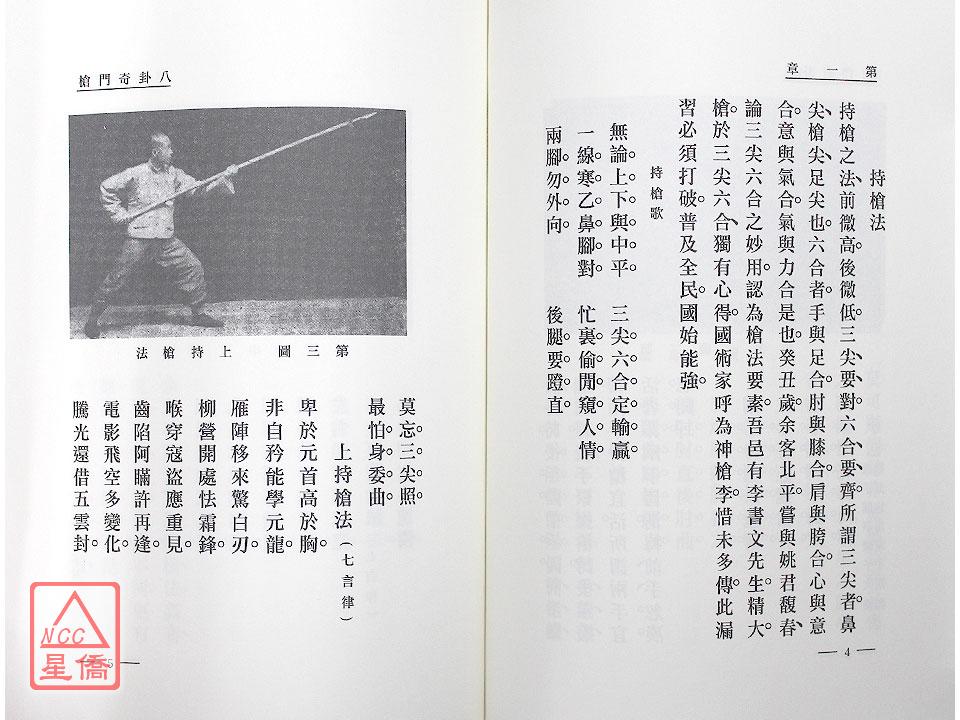 第一章
持槍法
持槍之法、前微高。後微低。三尖、要對。六合、要齊。所謂三尖者。鼻
尖、槍尖、足尖也。六合者。手與足合。肘與膝合。肩與胯合。心與意
合。意與氣合。氣與力合是也。癸丑歲。余客北平。嘗與姚君馥春、
論三尖六合之妙用。認為槍法要素。吾邑有李書文先生。精大
槍。於三尖六合、獨有心得。國術家呼為神槍李。惜未多傳。此漏
習必須打破。普及全民。國始能強。
持槍歌
無論上下與中平。 三尖六合定輸贏。
一線寒乙鼻腳對。 忙裏偷閒窺人情。
兩腳勿外向。 後腿要蹬直。
4
八卦奇門槍
第三圖 上持槍法
莫忘三尖照。
最怕身委曲。
上持槍法(七言律)
卑於元首高於胸。
非自矜能學元龍。
雁陣移來驚白刃。
柳營開處怯霜鋒。
喉穿寇盜應重見。
齒陷阿瞞許再逢。
電影飛空多變化。
騰光還借五雲封。
5
NCC
星僑